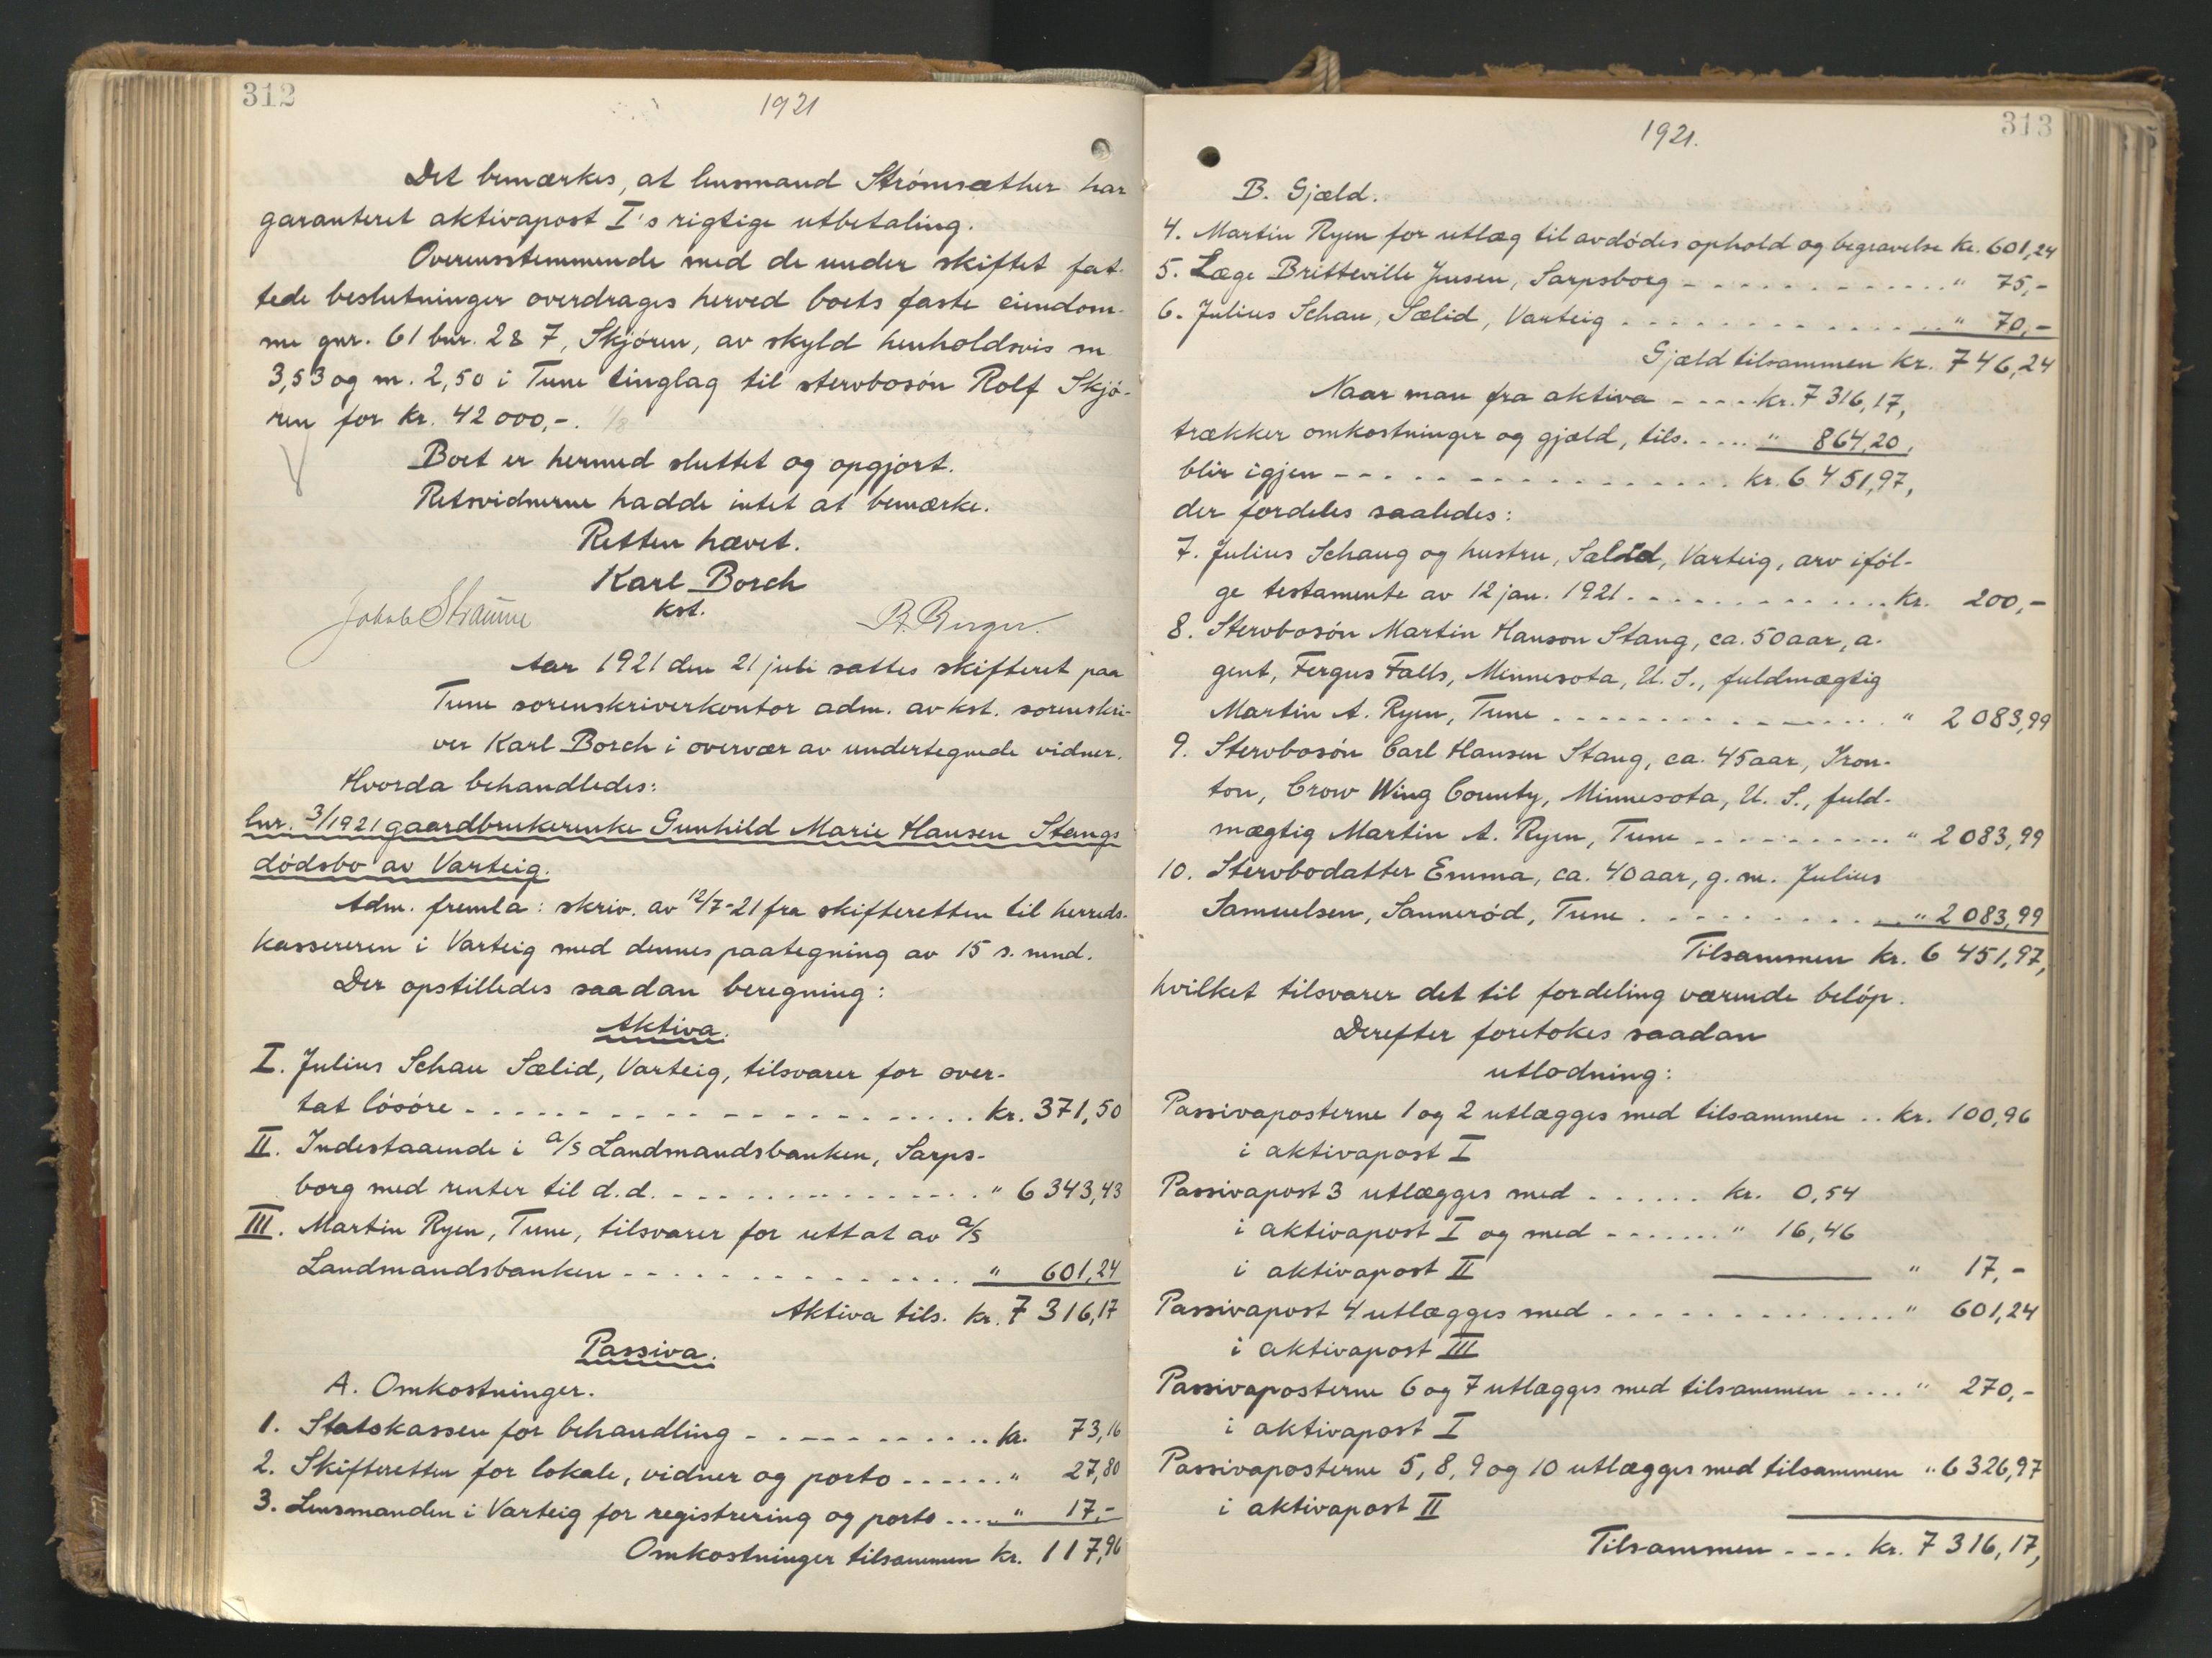 312
1921
Det bemærkes, at lensmand Strømsæther har
garanteret aktivapost I's rigtige utbetaling.
Overensstemmende med de under skiftet fat-
tede beslutninger overdrages herved boets faste eiendom-
me gnr. 61 bnr. 2 & 7, Skjøren, av skyld henholdsvis m
3,53 og m. 2,50 i Tune tinglag til stervbosøn Rolf Skjø-
ren for kr. 42 000,-. 1/8
Boet er hermed sluttet og opgjort.
Retsvidnerne hadde intet at bemærke.
Retten hævet.
Karl Borch
kst.
Jakob Straume
Aar 1921 den 21 juli sattes skifteret paa
Tune sorenskriverkontor adm. av kst. sorenskri-
ver Karl Borch i overvær av undertegnede vidner.
Hvorda behandledes:
lnr. 3/1921 gaardbrukerenke Gunhild Marie Hansen Stangs
dødsbo av Varteig.
Adm. fremla: skriv. av 12/7-21 fra skifteretten til herreds-
kassereren i Varteig med dennes paategning av 15 s. mnd.
Der opstilledes saadan beregning:
Aktiva.
I. Julius Schau Sælid, Varteig, tilsvarer for over-
tat løsøre - - - - - - - - - - kr. 371,50
II. Indestaaende i a/s Landmandsbanken, Sarps-
borg med renter til d.d. - - - - - - - - " 6 343,43
III. Martin Ryen, Tune, tilsvarer for uttat av a/s
Landmandsbanken - - - - - - - - - - " 601,24
Aktiva tils. kr. 7 316,17
Passiva.
A. Omkostninger.
1. Statskassen for behandling - - - - - - - - kr. 73,16
2. Skifteretten for lokale, vidner og porto - - - - - - " 27,80
3. Lensmanden i Varteig for registrering og porto - - - - " 17,-
Omkostninger tilsammen kr. 117,96
313
1921.
B. Gjæld.
4. Martin Ryen for utlæg til avdødes ophold og begravelse kr. 601,24
5. Læge Britteville Jensen, Sarpsborg - - - - - - - - " 75,-
6. Julius Schau, Sælid, Varteig - - - - - - - - - - " 70,-
Gjæld tilsammen kr. 746,24
Naar man fra aktiva - - - - kr. 7 316,17,
trækker omkostninger og gjæld, tils. - - - - " 864,20,
blir igjen - - - - - - - - - - - - kr. 6 451,97,
der fordeles saaledes:
7. Julius Schaug og hustru, Sælid, Varteig, arv iføl-
ge testamente av 12 jan. 1921 - - - - - - - - kr. 200,-
8. Stervbosøn Martin Hanson Stang, ca. 50 aar, a-
gent, Fergus Falls, Minnesota, U. S., fuldmægtig
Martin A. Ryen, Tune - - - - - - - - - - " 2 083,99
9. Stervbosøn Carl Hansen Stang, ca. 45 aar, Iron-
ton, Crow Wing County, Minnesota, U. S., fuld-
mægtig Martin A. Ryen, Tune - - - - - - - - " 2 083,99
10. Stervbodatter Emma, ca. 40 aar, g. m. Julius
Samuelsen, Sannerød, Tune - - - - - - - - " 2 083,99
Tilsammen kr. 6 451,97,
hvilket tilsvarer det til fordeling værende beløp.
Derefter foretokes saadan
utlodning:
Passivaposterne 1 og 2 utlægges med tilsammen .. kr. 100,96
i aktivapost I
Passivapost 3 utlægges med - - - - - - kr. 0,54
i aktivapost I og med - - - - - - " 16,46
i aktivapost II " 17,-
Passivapost 4 utlægges med - - - - - - - - - " 601,24
i aktivapost III
Passivaposterne 6 og 7 utlægges med tilsammen - - - - " 270,-
i aktivapost I
Passivaposterne 5, 8, 9 og 10 utlægges med tilsammen " 6 326,97
i aktivapost II
Tilsammen - - - - kr. 7 316,17,